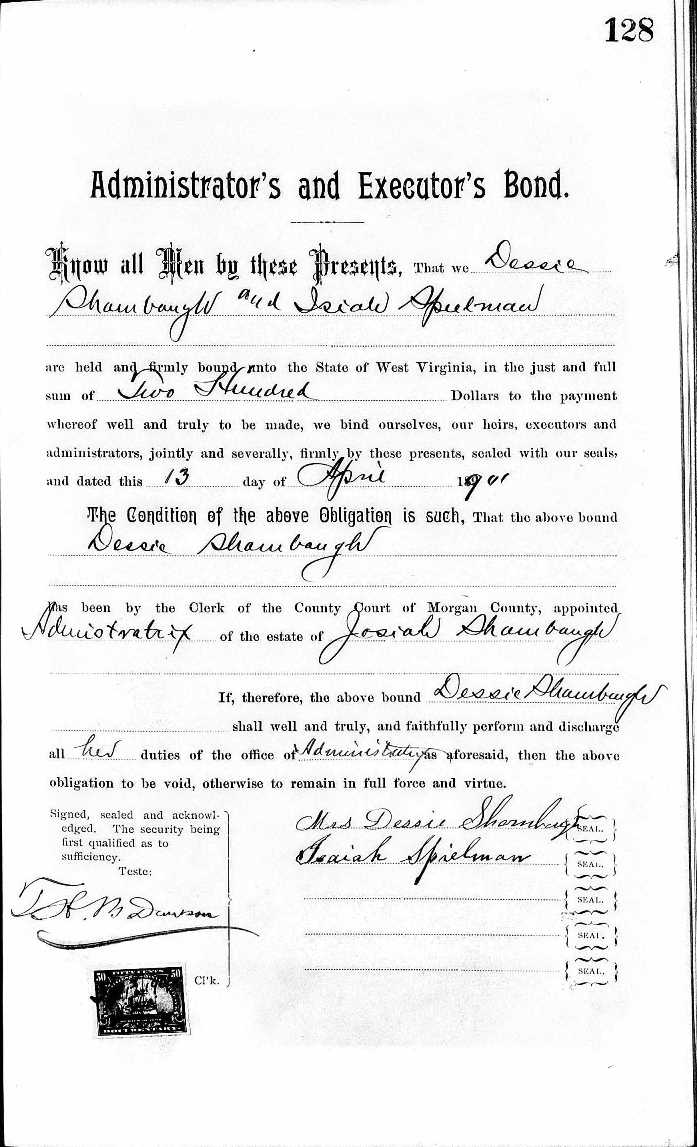 128
Administrator's and Executor's Bond.
Know all Men by these Presents, That we Dessie
Shambaugh and Isiah Spielman
are held and firmly bound unto the State of West Virginia, in the just and full
sum of Two Hundred Dollars to the payment
whereof well and truly to be made, we bind ourselves, our heirs, executors and
administrators, jointly and severally, firmly by these presents, sealed with our seals,
and dated this 13 day of April 1901
The Condition of the above Obligation is such, That the above bound
Dessie Shambaugh
has been by the Clerk of the County Court of Morgan County, appointed
Administratrix of the estate of Josiah Shambaugh
If, therefore, the above bound Dessie Shambaugh
shall well and truly, and faithfully perform and discharge
all her duties of the office of Administratrix as aforesaid, then the above
obligation to be void, otherwise to remain in full force and virtue.
Signed, sealed and acknowl-
edged. The security being
first qualified as to
sufficiency.
Teste:
Cl'k.
Mrs Dessie Shambaugh SEAL.
Isaiah Spielman SEAL.
SEAL.
SEAL.
SEAL.
50 50